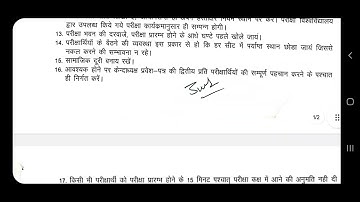 द्वार उपलब्ध किये गये परीक्षा कार्यक्रमानुसार ही सम्पन्न होगी।
13. परीक्षा भवन की दरवाजें, परीक्षा प्रारम्भ होने के आधे घण्टे पहले खोले जायं।
14. परीक्षार्थियों के बैठने की व्यवस्था इस प्रकार से हो कि हर सीट में पर्याप्त स्थान छोड़ा जायं जिससे
नकल करने की सम्भावना न रहे।
15. सामाजिक दूरी बनाय रखें।
16. आवश्यक होने पर केन्द्राध्यक्ष प्रवेश-पत्र की द्वितीय प्रति परीक्षार्थियों की सम्पूर्ण पहचान करने के पश्चात
ही निर्गत करें।
1/2
17. किसी भी परीक्षार्थी को परीक्षा प्रारम्भ होने के 15 मिनट पश्चात् परीक्षा कक्ष में आने की अनुमति नही दी